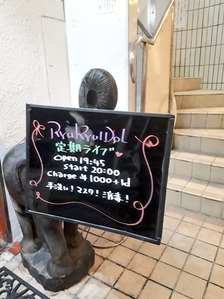 RyuRyuIDOL
定期ライブ
open 19:45
start 20:00
charge ¥1000+1d
手洗い!マスク!消毒!